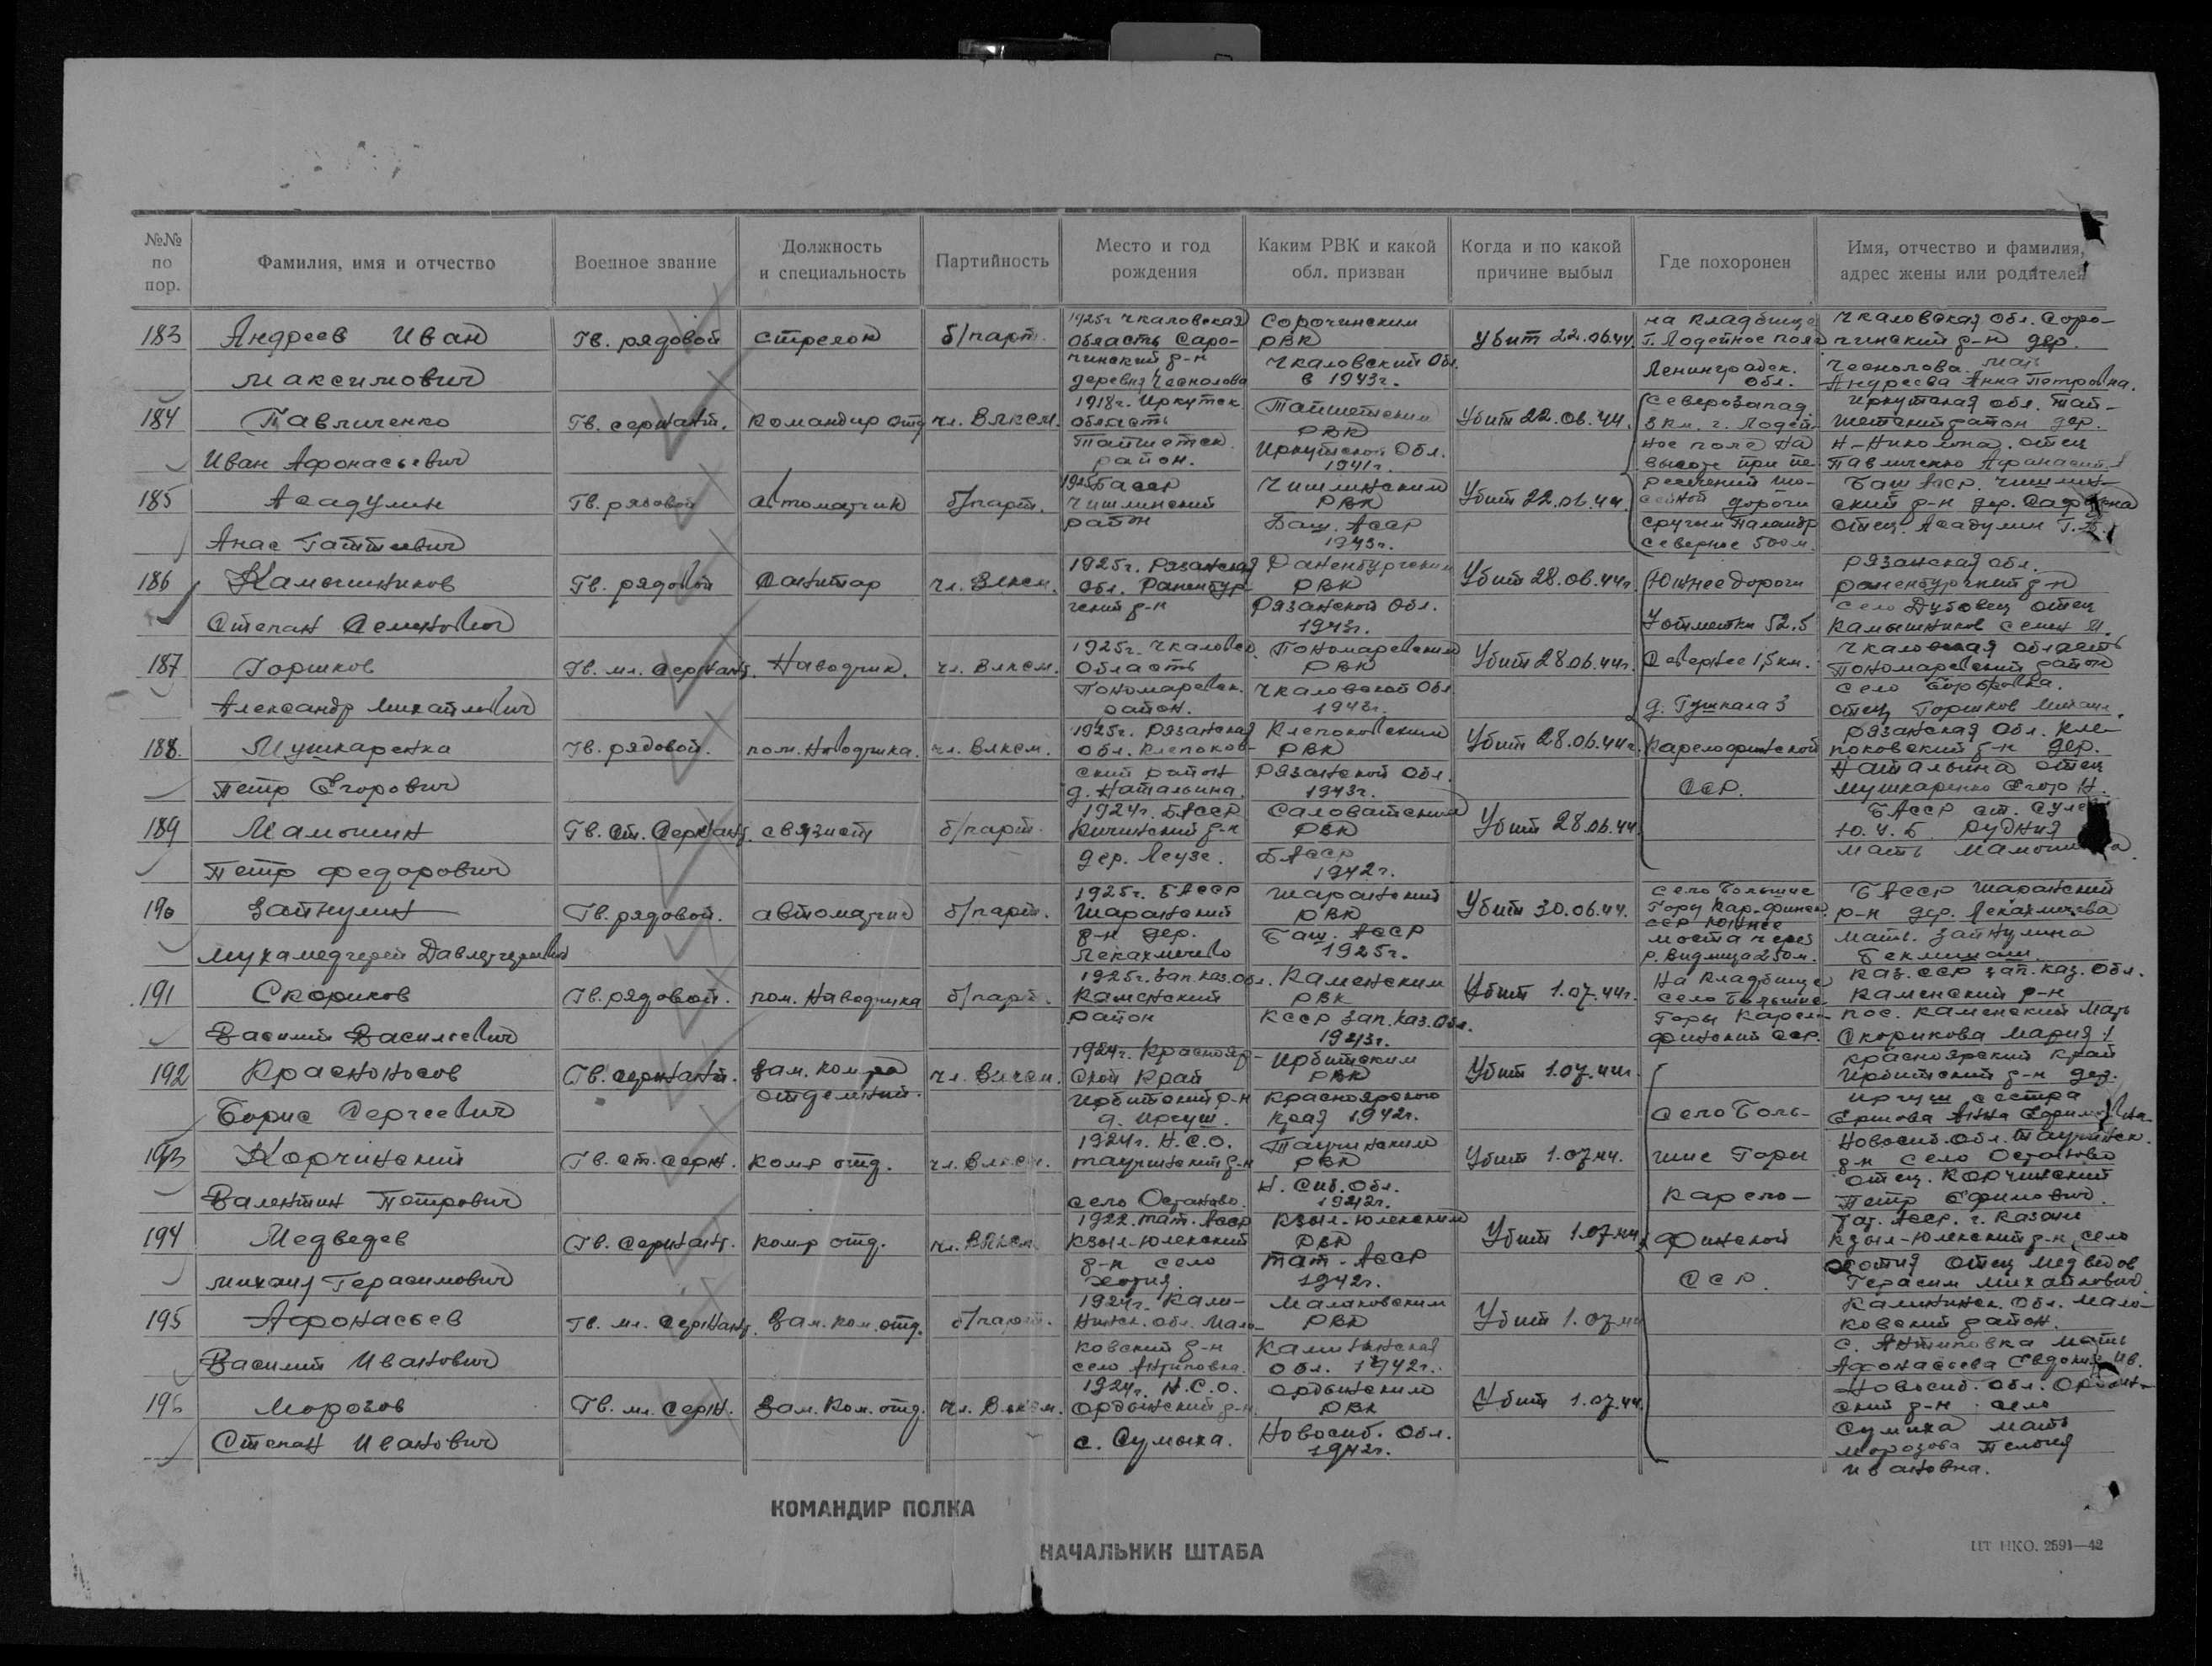 №№ по пор.
Фамилия, имя и отчество
Военное звание
Должность и специальность
Партийность
Место и год рождения
Каким РВК и какой обл. призван
Когда и по какой причине выбыл
Где похоронен
Имя, отчество и фамилия, адрес жены или родителей
183
Андреев Иван
Максимович
Гв. рядовой
стрелок
б/парт.
1925г Чкаловская
область Саро-
чинский р-н
деревня Чеснолова
Сорочинским
РВК
Чкаловский Обл.
в 1943г.
Убит 22.06.44.
на кладбище
г. Лодейное поле
Ленинградск.
обл.
Чкаловская обл. Соро-
чинский р-н дер.
Чеснолова. мать
Андреева Анна Петровна.
184
Павличенко
Иван Афонасьевич
Гв. сержант.
Командир отд
чл. Влксм.
1918г. Иркутск.
область
Тайшетск.
район.
Тайшетским
РВК
Иркутской Обл.
1941г.
Убит 22.06.44.
северозапад.
3 км. г. Лодей-
ное поле на
высоте при пе-
Иркутская обл. Тай-
шетский район дер.
отец
Павличенко
185
Асадулин
Анас
Гв. рядовой
автоматчик
б/парт.
1925 Басср
Чишминский
район
Чишминским
РВК
Баш. АССР
1943г.
Убит 22.06.44.
ресечений шо-
сейной дороги
северное 500м.
Баш Асср. Чишмин-
ский р-н дер.
отец. Асадулин
186
Камышников
Степан Семенович
Гв. рядовой
Санитар
чл. Влксм.
1925г. Рязанская
обл. Раненбург-
ский р-н
Раненбургским
РВК
Рязанской Обл.
1943г.
Убит 28.06.44г.
Южнее дороги
У отметки 52.5
Рязанская обл.
раненбургский р-н
село Дубовец отец
Камышников Семен
187
Горшков
Александр Михайлович
Гв. мл. Сержант.
Наводчик.
чл. Влксм.
1925г. Чкаловск.
Область
Пономаревск.
район.
Пономаревским
РВК
Чкаловской Обл.
1943г.
Убит 28.06.44г.
Севернее 1,5 км.
д. Гушкала 3
Чкаловская область
Пономаревский район
село
отец Горшков Михаил.
188.
Мушкаренка
Петр Егорович
Гв. рядовой.
пом. Наводчика.
чл. Влксм.
1925г. Рязанская
обл. Клепоков-
ский район
д. Натальина.
Клепоковским
РВК
Рязанской Обл.
1943г.
Убит 28.06.44г.
Карелофинской
ССР.
Рязанская обл. Кле-
поковский р-н дер.
Натальина отец
Мушкаренко Егор Н.
189
Мамошин
Петр Федорович
Гв. Ст. Сержант.
связист
б/парт.
1924г. БАССР
р-н
дер. Леузе.
Саловатским
РВК
БАССР
1942г.
Убит 28.06.44
БАССР ст.
Ю.У.Б. Рудния
мать
190
Зайнулин
Мухамедгерей
Гв. рядовой.
автоматчик
б/парт.
1925г. БАССР
Шаранский
р-н дер.
Шаранский
РВК
Баш. АССР
1925г.
Убит 30.06.44.
село Большие
Горы Кар-финск.
ССР Южнее
моста через
р. Видлица 250м.
БАССР Шаранский
р-н дер.
мать. Зайнулина
191
Скориков
Василий Васильевич
Гв. рядовой.
пом. Наводчика
б/парт.
1925г. Зап. Каз. Обл.
Каменский
район
Каменским
РВК
КССР Зап. Каз. Обл.
1943г.
Убит 1.07.44г.
На кладбище
село Большие
Горы Карело-
финский ССР.
Каз. ССР Зап. Каз. Обл.
Каменский р-н
пос. Каменский мать
Скорикова Мария
192
Красноносов
Борис Сергеевич
Гв. сержант.
Зам. ком-ра
отделений.
чл. Влксм.
1924г. Краснояр-
ской Край
Ирбитский р-н
д. Иргуш.
Ирбитским
РВК
Красноярского
края 1942г.
Убит 1.07.44г.
Село Боль-
шие Горы
Карело-
финской
ССР.
Красноярский край
Ирбитский р-н дер.
Иргуш сестра
Ершова Анна
193
Корчинский
Валентин Петрович
Гв. ст. серж.
ком-р отд.
чл. Влксм.
1924г. Н.С.О.
р-н
село Останово.
РВК
Н. Сиб. Обл.
1942г.
Убит 1.07.44.
Новосиб. обл.
р-н село Останово
отец. Корчинский
Петр Ефимович.
194
Медведев
Михаил Герасимович
Гв. Сержант.
ком-р отд.
чл. Влксм.
1922. Тат. Асср
Кзыл-Юлекский
р-н село
Кзыл-Юлекским
РВК
Тат. АССР
1942г.
Убит 1.07.44
Тат. Асср. г. Казань
Кзыл-Юлекский р-н село
отец Медведев
Герасим Михайлович
195
Афонасьев
Василий Иванович
Гв. мл. Сержант.
Зам. ком. отд.
б/парт.
1924г. Кали-
нинск. обл. Мало-
ковский р-н
село Антиповка.
Малаковским
РВК
Калининская
обл. 1942г.
Убит 1.07.44
Калининск. Обл. Мало-
ковский район.
с. Антиповка мать
Афонасьева Евдокия Ив.
196
Морозов
Степан Иванович
Гв. мл. Серж.
Зам. Ком. отд.
чл. Влксм.
1924г. Н.С.О.
Ордынский р-н.
с. Сумыха.
Ордынским
РВК
Новосиб. Обл.
1942г.
Убит 1.07.44
Новосиб. обл. Ордын-
ский р-н село
Сумиха мать
Морозова
Ивановна.
КОМАНДИР ПОЛКА
НАЧАЛЬНИК ШТАБА
ЦТ НКО. 2591—42